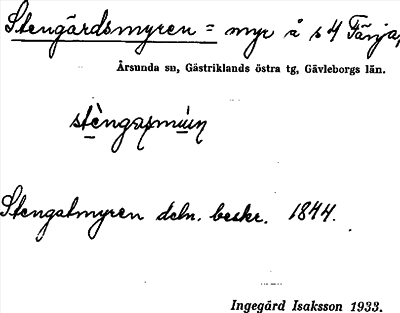 Stengårdsmyren = myr å s 4 Färja,
Årsunda sn, Gästriklands östra tg, Gävleborgs län.
Stengatmyren deln. beskr. 1844.
Ingegärd Isaksson 1933.